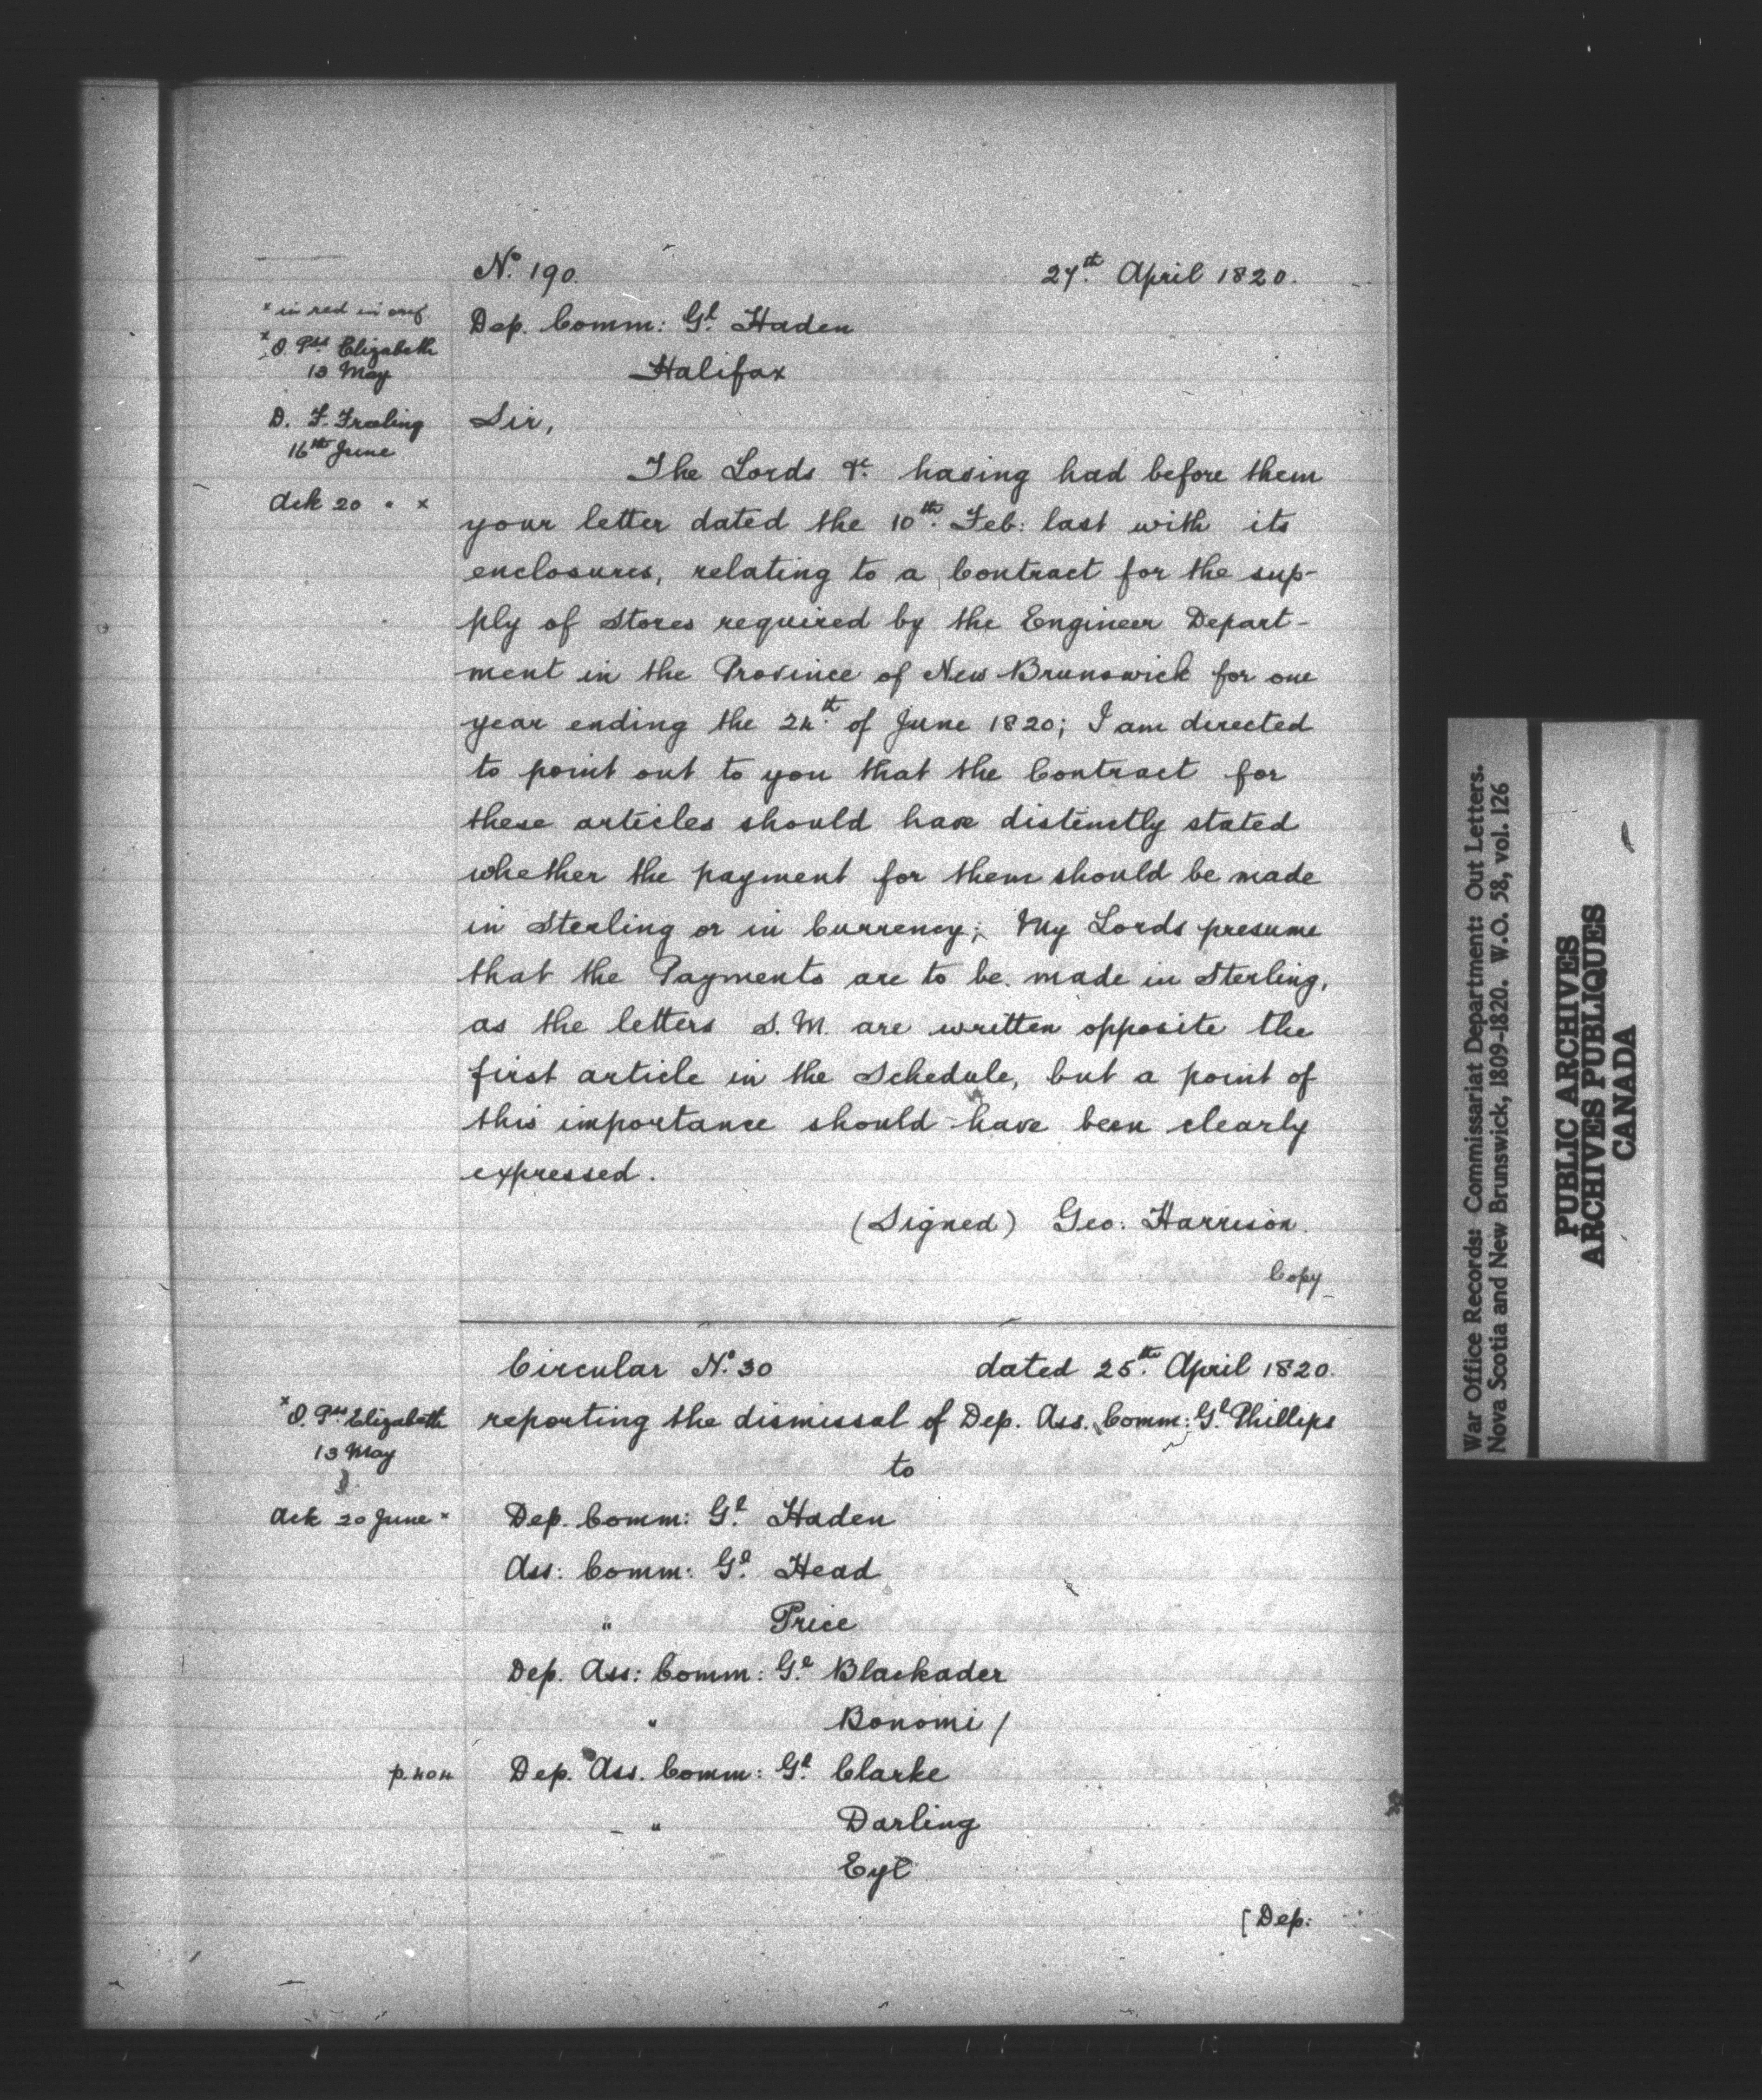 No. 190. 27th. April 1820.
* in red in orig
Dep. Comm: Gl. Haden
* O. Pss. Elizabeth
13 May
Halifax
D. F. Freeling
16th June
Sir,
The Lords &c. having had before them
Ack 20 " *
your letter dated the 10th. Feb: last with its
enclosures, relating to a Contract for the sup-
ply of Stores required by the Engineer Depart-
ment in the Province of New Brunswick for one
year ending the 24th. of June 1820; I am directed
to point out to you that the Contract for
these articles should have distinctly stated
whether the payment for them should be made
in Sterling or in Currency; My Lords presume
that the Payments are to be made in Sterling,
as the letters S. M. are written opposite the
first article in the Schedule, but a point of
this importance should have been clearly
expressed.
(Signed) Geo: Harrison.
Copy
Circular No. 30 dated 25th. April 1820.
* O. Pss. Elizabeth
13 May
reporting the dismissal of Dep. Ass. Comm: Gl. Phillips
to
Ack 20 June *
Dep. Comm: Gl. Haden
Ass: Comm: Gl. Head
" Price
Dep. Ass: Comm: Gl. Blackader
" Bonomi /
p. 404
Dep. Ass. Comm: Gl. Clarke
" Darling
Eyl
[Dep:
War Office Records: Commissariat Department: Out Letters.
Nova Scotia and New Brunswick, 1809-1820. W.O. 58, vol. 126
PUBLIC ARCHIVES
ARCHIVES PUBLIQUES
CANADA